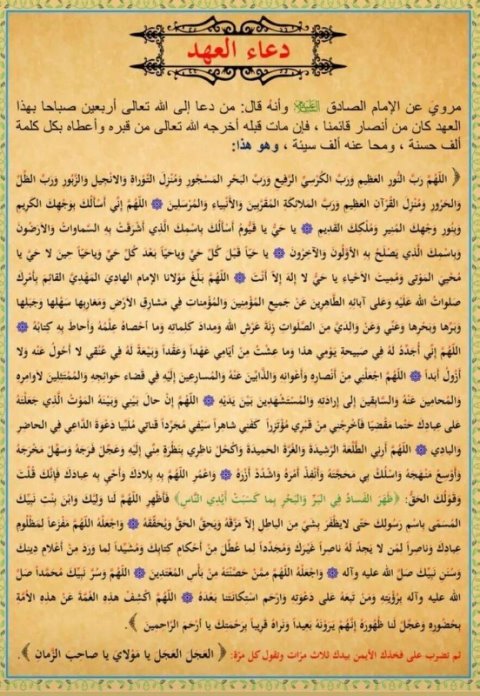 دعاء العهد
مروي عن الإمام الصادق وأنهُ قال: من دعا إلى الله تعالى أربعين صباحا بهذا
العهد كان من أنصار قائمنا ، فإن مات قبله أخرجه الله تعالى من قبره وأعطاه بكل كلمة
ألف حسنة ، ومحا عنه ألف سيئة ، وهو هذا:
﴿ اللَّهُمَّ رَبَّ النُّورِ العَظِيمِ وَرَبَّ الكُرْسِيِّ الرَّفِيعِ وَرَبَّ البَحْرِ المَسْجُورِ وَمُنْزِلَ التَّوْرَاةِ وَالانْجِيلِ وَالزَّبُورِ وَرَبَّ الظِّلِّ
وَالحَرُورِ وَمُنْزِلَ القُرْآنِ العَظِيمِ وَرَبَّ المَلائِكَةِ المُقَرَّبِينَ وَالأَنْبِيَاءِ وَالمُرْسَلِينَ اللَّهُمَّ إِنِّي أَسْأَلُكَ بِوَجْهِكَ الكَرِيمِ
وَبِنُورِ وَجْهِكَ المُنِيرِ وَمُلْكِكَ القَدِيمِ يا حَيُّ يا قَيُّومُ أَسْأَلُكَ بِاسْمِكَ الَّذِي أَشْرَقَتْ بِهِ السَّماواتُ وَالأرَضُونَ
وَبِاسْمِكَ الَّذِي يَصْلَحُ بِهِ الأَوَّلُونَ وَالآخِرُونَ يا حَيّاً قَبْلَ كُلِّ حَيٍّ وَياحَيّاً بَعْدَ كُلِّ حَيٍّ وَياحَيّاً حِينَ لا حَيَّ يا
مُحْيِيَ المَوْتى وَمُمِيتَ الأحْياءِ يا حَيُّ لا إِلهَ إِلاّ أَنْتَ اللَّهُمَّ بَلِّغْ مَوْلانا الإمامَ الهادِيَ المَهْدِيَّ القائِمَ بِأَمْرِكَ
صلواتُ الله عَلَيْهِ وَعَلى وعلى آبائِهِ الطَّاهِرِينَ عَنْ جَمِيعِ المُؤْمِنِينَ وَالمُؤْمِناتِ فِي مَشارِقِ الأرْضِ وَمَغارِبِها سَهْلِها وَجَبَلِها
وَبَرِّها وَبَحْرِها وَعَنِّي وَعَنْ وَالِدَيَّ مِنَ الصَّلَواتِ زِنَةَ عَرْشِ اللهِ وَمِدادَ كَلِماتِهِ وَما أَحْصاهُ عِلْمُهُ وَأَحاطَ بِهِ كِتابُهُ
اللَّهُمَّ إِنِّي أُجَدِّدُ لَهُ فِي صَبِيحَةِ يَوْمِي هذا وَما عِشْتُ مِنْ أَيّامِي عَهْداً وَعَقْداً وَبَيْعَةً لَهُ فِي عُنُقِي لا أَحُولُ عَنْه وَلا
أَزُولُ أَبَداً اللَّهُمَّ اجْعَلْنِي مِنْ أَنْصارِهِ وَأَعْوانِهِ وَالذَّابِّينَ عَنْهُ وَالمُسارِعِينَ إِلَيْهِ فِي قَضاءِ حَوائِجِهِ وَالمُمْتَثِلِينَ لأوامِرِه
وَالمُحامِينَ عَنْهُ وَالسَّابِقِينَ إِلى إِرادَتِهِ وَالمُسْتَشْهَدِينَ بَيْنَ يَدَيْهِ اللَّهُمَّ إِنْ حالَ بَيْنِي وَبَيْنَهُ المَوْتُ الَّذِي جَعَلْتَهُ
عَلى عِبادِكَ حَتْماً مَقْضِيّاً فَأَخْرِجْنِي مِنْ قَبْرِي مُؤْتَزِراً كَفَنِي شاهِراً سَيْفِي مُجَرِّداً قَناتِي مُلَبِّياً دَعْوَةَ الدَّاعِي فِي الحاضِرِ
وَالبادِي اللَّهُمَّ أَرِنِي الطَّلْعَةَ الرَّشِيدَةَ وَالغُرَّةَ الحَمِيدَةَ وَاكْحُلْ ناظِرِي بِنَظْرَةٍ مِنِّي إِلَيْهِ وَعَجِّلْ فَرَجَهُ وَسَهِّلْ مَخْرَجَهُ
وَأَوْسِعْ مَنْهَجَهُ وَاسْلُكْ بِي مَحَجَّتَهُ وَأَنْفِذْ أَمْرَهُ وَاشْدُدْ أَزْرَهُ وَاعْمُرِ اللَّهُمَّ بِهِ بِلادَكَ وَأَحْيِ بِهِ عِبادَكَ فَإِنَّكَ قُلْتَ
وَقَوْلُكَ الحَقُّ: ﴿ظَهَرَ الفَسادُ فِي البَرِّ وَالبَحْرِ بِما كَسَبَتْ أَيْدِي النَّاسِ﴾ فَأَظْهِرِ اللَّهُمَّ لَنا وَلِيَّكَ وَابْنَ بِنْتِ نَبِيِّكَ
المُسَمّى بِاسْمِ رَسُولِكَ حَتّى لايَظْفَرَ بِشَيْءٍ مِنَ الباطِلِ إِلاّ مَزَّقَهُ وَيَحِقَّ الحَقَّ وَيُحَقِّقَهُ وَاجْعَلْهُ اللَّهُمَّ مَفْزَعاً لِمَظْلُومِ
عِبادِكَ وَناصِراً لِمَن لا يَجِدُ لَهُ ناصِراً غَيْرَكَ وَمُجَدِّداً لِما عُطِّلَ مِنْ أَحْكامِ كِتابِكَ وَمُشَيِّداً لِما وَرَدَ مِنْ أَعْلامِ دِينِكَ
وَسُنَنِ نَبِيِّكَ صَلَّ الله عليه وآله وَاجْعَلْهُ اللَّهُمَّ مِمَّنْ حَصَّنْتَهُ مِنْ بَأْسِ المُعْتَدِينَ اللَّهُمَّ وَسُرَّ نَبِيَّكَ مُحَمَّداً صَلَّ
الله عليه وآله بِرُؤْيَتِهِ وَمَنْ تَبِعَهُ عَلى دَعْوَتِهِ وَارْحَمِ اسْتِكانَتَنا بَعْدَهُ اللَّهُمَّ اكْشِفْ هذِهِ الغُمَّةَ عَنْ هذِهِ الأُمَّةِ
بِحُضُورِهِ وَعَجِّلْ لَنا ظُهُورَهُ إِنَّهُمْ يَرَوْنَهُ بَعِيداً وَنَراهُ قَرِيباً بِرَحْمَتِكَ يا أَرْحَمَ الرَّاحِمِينَ ﴾
ثم تضرب على فخذك الأيمن بيدك ثلاث مرّات وتقول كل مرّة: ﴿ العَجَلَ العَجَلَ يا مَوْلايَ يا صاحِبَ الزَّمان ﴾.